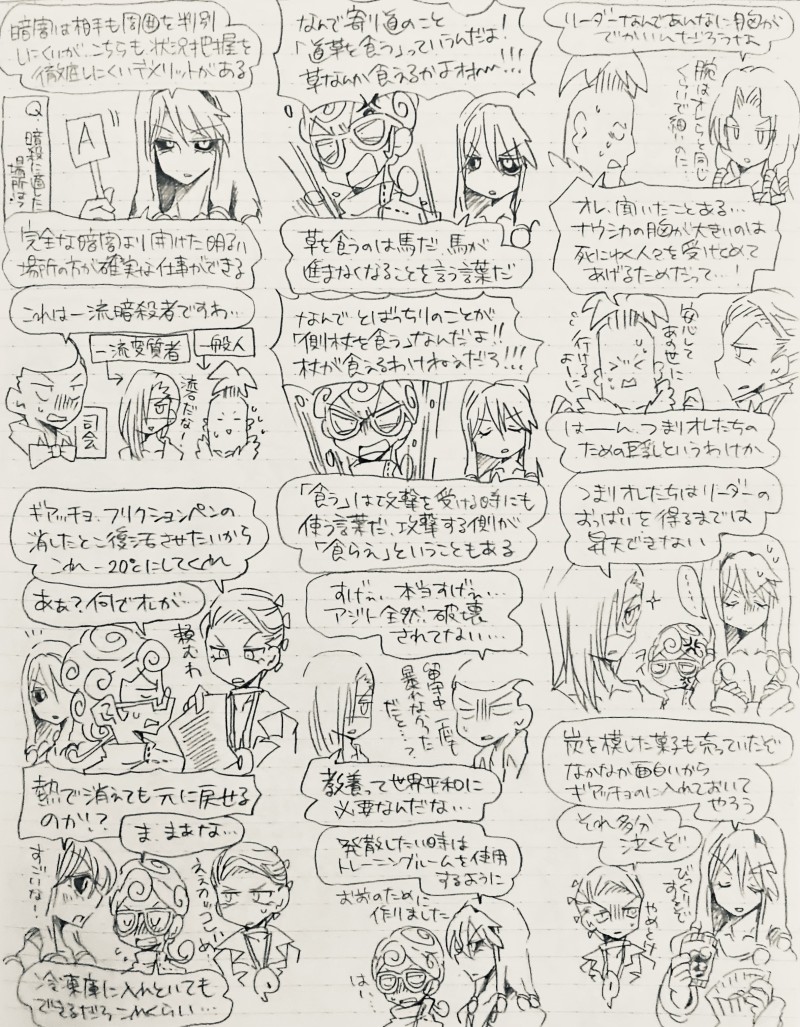 リーダーなんであんなに胸が
でかいんだろうなよ
腕はオレらと同じ
くらいで細いのに…
オレ、聞いたことある…
ナウシカの胸が大きいのは
死にゆく人々を受けとめて
あげるためだって…!
安心して
あのせに
行けるに
よーに
はーん、つまりオレたちの
ための巨乳というわけか
つまりオレたちはリーダーの
おっぱいを得るまでは
昇天できない
炭を模した菓子も売っていたぞ
なかなか面白いから
ギアッチョのに入れておいて
やろう
それ多分
泣くぞ
びっくり
するぞ
やめとけ
なんで寄り道のこと
「道草を食う」っていうんだよ!
草なんか食えるかよオオ~~!!!
草を食うのは馬だ 馬が
進まなくなることを言う言葉だ
なんで とばっちりのことが
「側杖を食う」なんだよ!!
杖が食えるわけねぇだろ!!!
「食う」は攻撃を受ける時にも
使う言葉だ、攻撃する側が
「食らえ」ということもある
すげぇ…本当すげぇ…
アジト全然、破壊
されてない…
留守中一度も
暴れなかった
だと…?
教養って世界平和に
必要なんだな…
発散したい時は
トレーニングルームを使用
するように
お前のために
作りました
はい…
暗闇は相手も周囲を判別
しにくいが、こちらも状況把握を
徹底しにくいデメリットがある
Q 暗殺に適した
場所は?
A
完全な暗闇より開けた明るい
場所の方が確実な仕事ができる
これは一流暗殺者ですわ…
一流変質者
一般人
流石だなー
司会
ギアッチョ、フリクションペンの
消したとこ復活させたいから
これ-20℃にしてくれ
あぁ?何でオレが…
頼むわ
熱で消えても元に戻せる
のか!?
ま、まあな…
すごいな!
ええカッコしいめ
冷凍庫に入れといても
できるだろこれくらい…